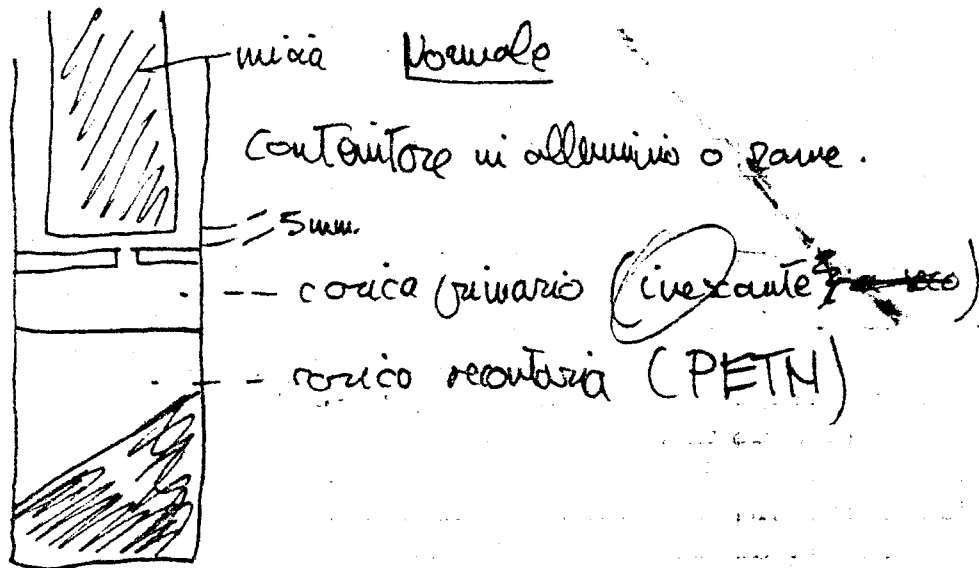 miccia Normale
contenitore in alluminio o rame.
5 mm.
carica primario (innescante)
carica secondaria (PETN)